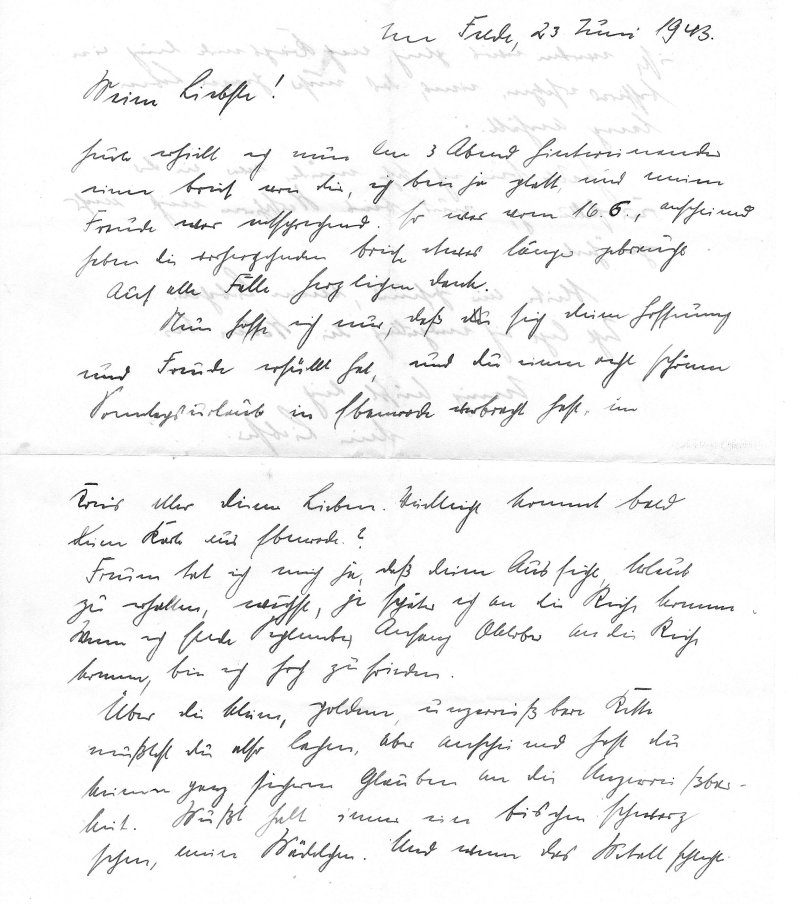 Im Felde, 23 Juni 1943.
Meine Liebste!
heute erhielt ich nun den 3 Abend hintereinander
einen Brief von dir, ich bin ja platt und meine
Freude war entsprechend. Er war vom 16.6., anscheinend
haben die vorhergehenden Briefe etwas länger gebraucht.
Auf alle Fälle herzlichen Dank.
Nun hoffe ich nur, daß sich deine Hoffnung
und Freude erfüllt hat, und du einen recht schönen
Sonntagsurlaub in Ebenrode verbracht hast, im
Kreis aller deiner Lieben. Vielleicht kommt bald
deine Karte aus Ebenrode?
Freuen tat ich mich ja, daß deine Aussicht, Urlaub
zu erhalten, wächst, je später ich an die Reihe komme.
Wenn ich Ende September, Anfang Oktober an die Reihe
komme, bin ich hoch zufrieden.
Über die kleine, goldene, unzerreißbare Kette
mußtest du also lachen, aber anscheinend hast du
keinen ganz sicheren Glauben an die Unzerreißbar-
keit. Mußt halt immer ein bischen schwarz
sehen, mein Mädelchen. Und wenn das Metall schlecht